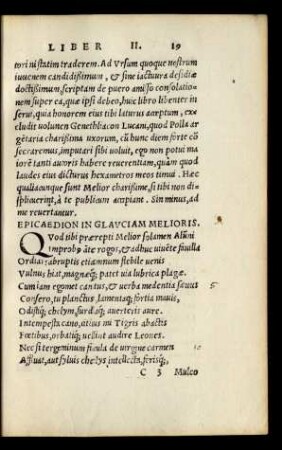 LIBER II. 19
tori nisi statim traderem. Ad Vrsum quoque nostrum
iuuenem candidissimum, & sine iactura desidiæ
doctissimum, scriptam de puero amisso consolatio=
nem super ea, quæ ipsi debeo, huic libro libenter in
serui, quia honorem eius tibi laturus acceptum, ex=
cludit uolumen Genethliacon Lucani, quod Polla ar=
gētaria charissima uxorum, cū hunc diem forte cō=
secraremus, imputari sibi uoluit, ego non potui ma
iorē tanti auctoris habere reuerentiam, quàm quod
laudes eius dicturus hexametros meos timui. Hæc
qualiacunque sunt Melior charissime, si tibi non di=
splicuerint, à te publicum accipiant. Sin minus, ad
me reuertantur.
EPICAEDION IN GLAVCIAM MELIORIS.
QVod tibi prærepti Melior solamen Alūni
Improbꝰ āte rogos, & adhuc uiuēte fauilla
Ordiar? abruptis etiamnum flebile uenis
Vulnus hiat, magnæq; patet uia lubrica plagæ.
Cum iam egomet cantus, & uerba medentia sæuus 5
Consero, tu planctus, lamentaq; fortia mauis,
Odistiq; chelyn, surdaq; auerteris aure.
Intempesta cano, citius me Tigris abactis
Fœtibus, orbatiq; uelint audire Leones.
Nec si tergeminum Sicula de uirgine carmen 10
Affluat, aut syluis chelys intellecta, ferisq;,
C 3 Mulceo